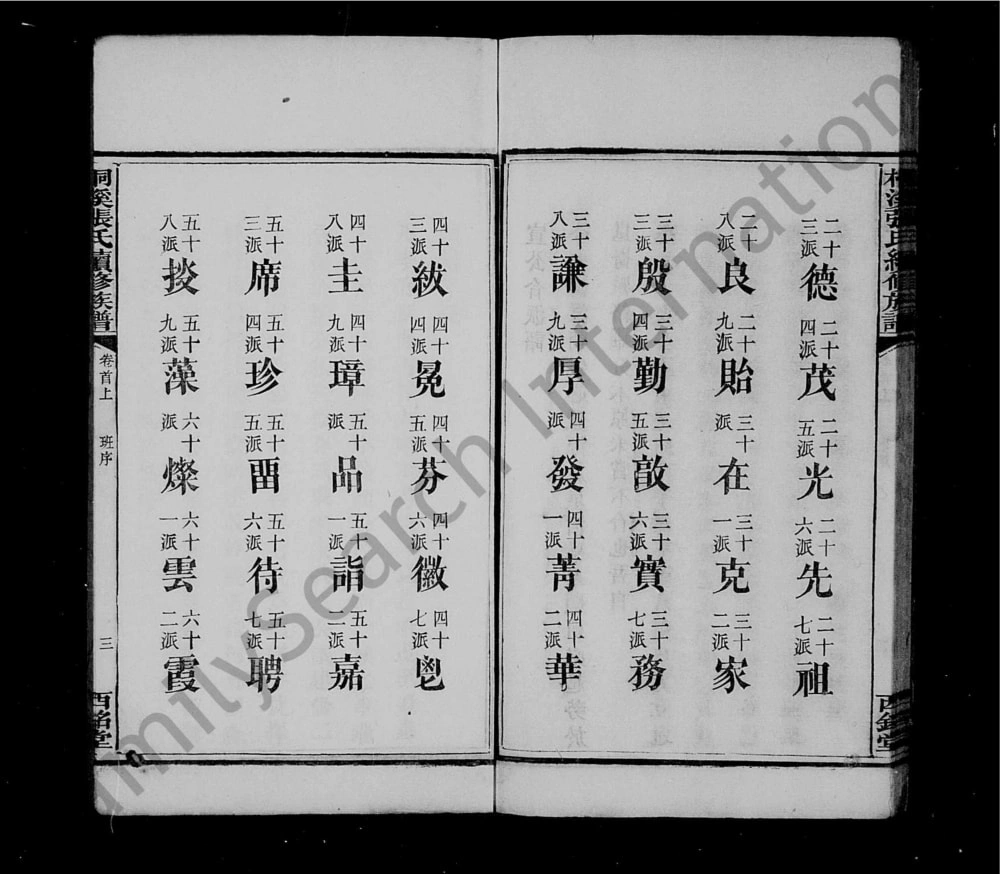 二十三派德 二十四派茂 二十五派光 二十六派先 二十七派祖
二十八派良 二十九派貽 三十派在 三十一派克 三十二派家
三十三派殷 三十四派勤 三十五派敦 三十六派實 三十七派務
三十八派謙 三十九派厚 四十派發 四十一派菁 四十二派華
桐溪張氏續修族譜
卷首上
班序
三
西銘堂
四十三派紱 四十四派冕 四十五派芬 四十六派徽 四十七派鬯
四十八派圭 四十九派璋 五十派品 五十一派詣 五十二派嘉
五十三派席 五十四派珍 五十五派畱 五十六派待 五十七派聘
五十八派掞 五十九派藻 六十派燦 六十一派雲 六十二派霞
FamilySearch International